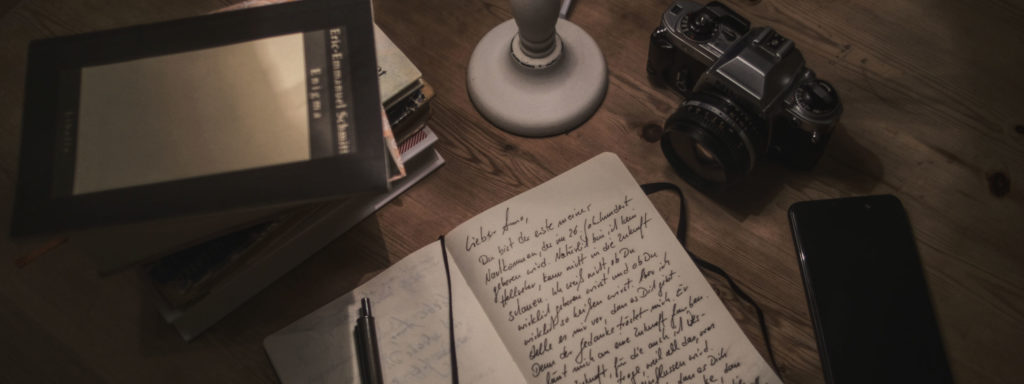 Eric-Emmanuel Schmitt
Enigma
Lieber Arno,
Du bist der erste meiner
Nachkommen, der im 26. Jahrhundert
geboren wird. Natürlich bin ich kein
Hellseher, kann nicht in die Zukunft
schauen. Ich weiß nicht, ob Du
wirklich geboren wirst und ob Du
wirklich so heißen wirst. Aber ich
stelle es mir vor, dass es Dich gibt.
Denn der Gedanke tröstet mich. Er
lässt mich an eine Zukunft glauben.
Zukunft, für die auch ich
trage, weil all das, was
beeinflussen wird
dass es Dich